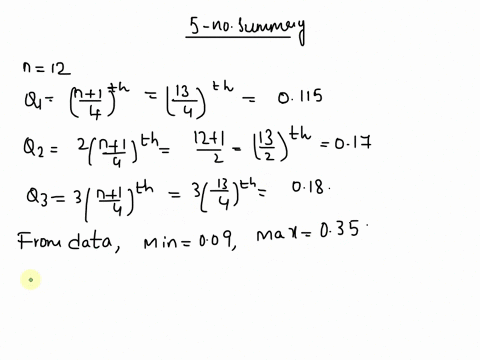 5-no. Summary
n = 12
Q1 = (n+1/4)^th = (13/4)^th = 0.115
Q2 = 2(n+1/4)^th = 12+1/2 = (13/2)^th = 0.17
Q3 = 3(n+1/4)^th = 3(13/4)^th = 0.18.
From data, Min = 0.09, Max = 0.35.